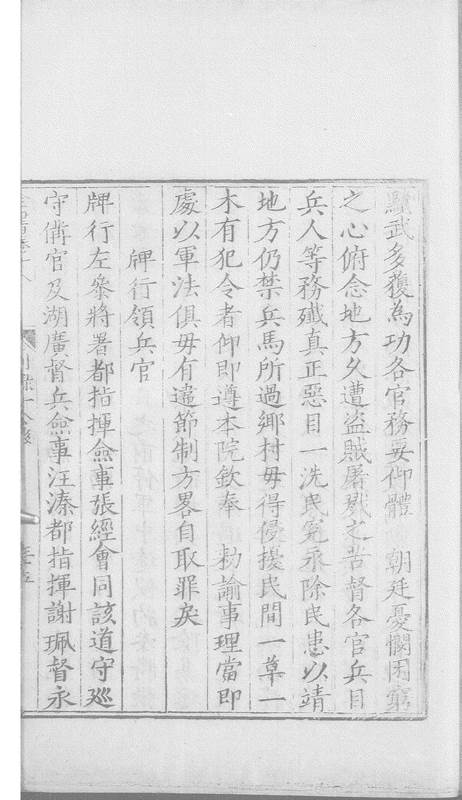 黷武多獲為功各官務要仰體　朝廷憂憫困窮
之心俯念地方久遭盜賊屠戮之苦督各官兵目
兵人等務殲真正惡目一洗民冤永除民患以靖
地方仍禁兵馬所過鄉村毋得侵擾民間一草一
木有犯令者仰即遵本院欽奉　勑諭事理當即
處以軍法俱毋有違節制方畧自取罪戾
牌行領兵官
牌行左叅將署都指揮僉事張經會同該道守廵
守備官及湖廣督兵僉事汪溱都指揮謝珮督永